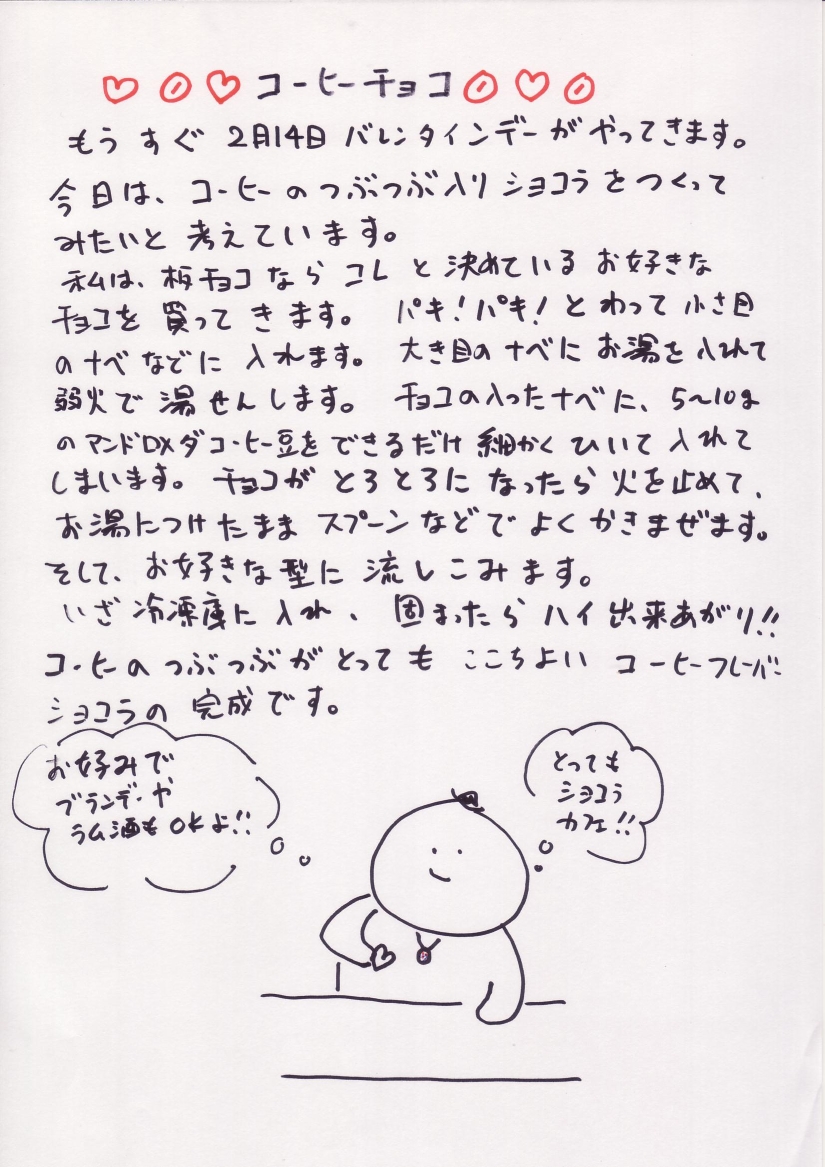 コーヒーチョコ
もうすぐ 2月14日 バレンタインデーが やってきます。
今日は、コーヒーの つぶつぶ入り ショコラを つくって
みたいと 考えています。
私は、板チョコなら コレ と 決めている お好きな
チョコを 買って きます。 パキ!パキ!と わって 小さ目
のナベなどに 入れます。 大き目のナベに お湯を入れて
弱火で 湯せんします。 チョコの入ったナベに、5〜10g
のマンドDXダコーヒー豆を できるだけ 細かく ひいて 入れて
しまいます。 チョコが とろとろに なったら 火を止めて、
お湯につけたまま スプーンなどで よく かきまぜます。
そして、お好きな 型に 流しこみます。
いざ 冷凍庫に 入れ、 固まったら ハイ 出来あがり!!
コーヒーの つぶつぶが とっても ここちよい コーヒーフレーバー
ショコラの 完成です。
お好みで
ブランデーや
ラム酒も OKよ!!
とっても
ショコラ
カフェ!!